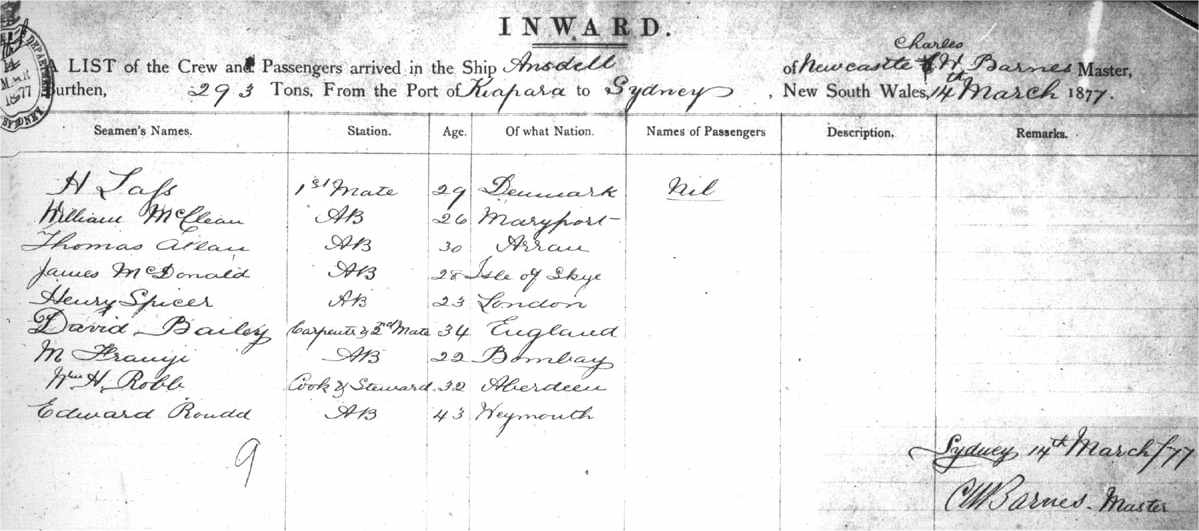 INWARD.
MAR
1877
SYDNEY
DEPARTMENT
Charles
A LIST of the Crew and Passengers arrived in the Ship Ansdell of Newcastle Barnes Master,
Burthen, 293 Tons, From the Port of Kiapara to Sydney, New South Wales, 14th March 1877.
Seamen's Names. Station. Age. Of what Nation. Names of Passengers Description. Remarks.
H 1st Mate 29 Denmark Nil
William McClean AB 26 Maryport
Thomas Allan AB 30 Arran
James McDonald AB 28 Isle of Skye
Henry Spicer AB 23 London
David Bailey Carpenter & 2nd Mate 34 England
M AB 22 Bombay
Wm H. Robb Cook & Steward 32 Aberdeen
Edward AB 43 Weymouth
9
Sydney 14th March /77
Barnes. Master